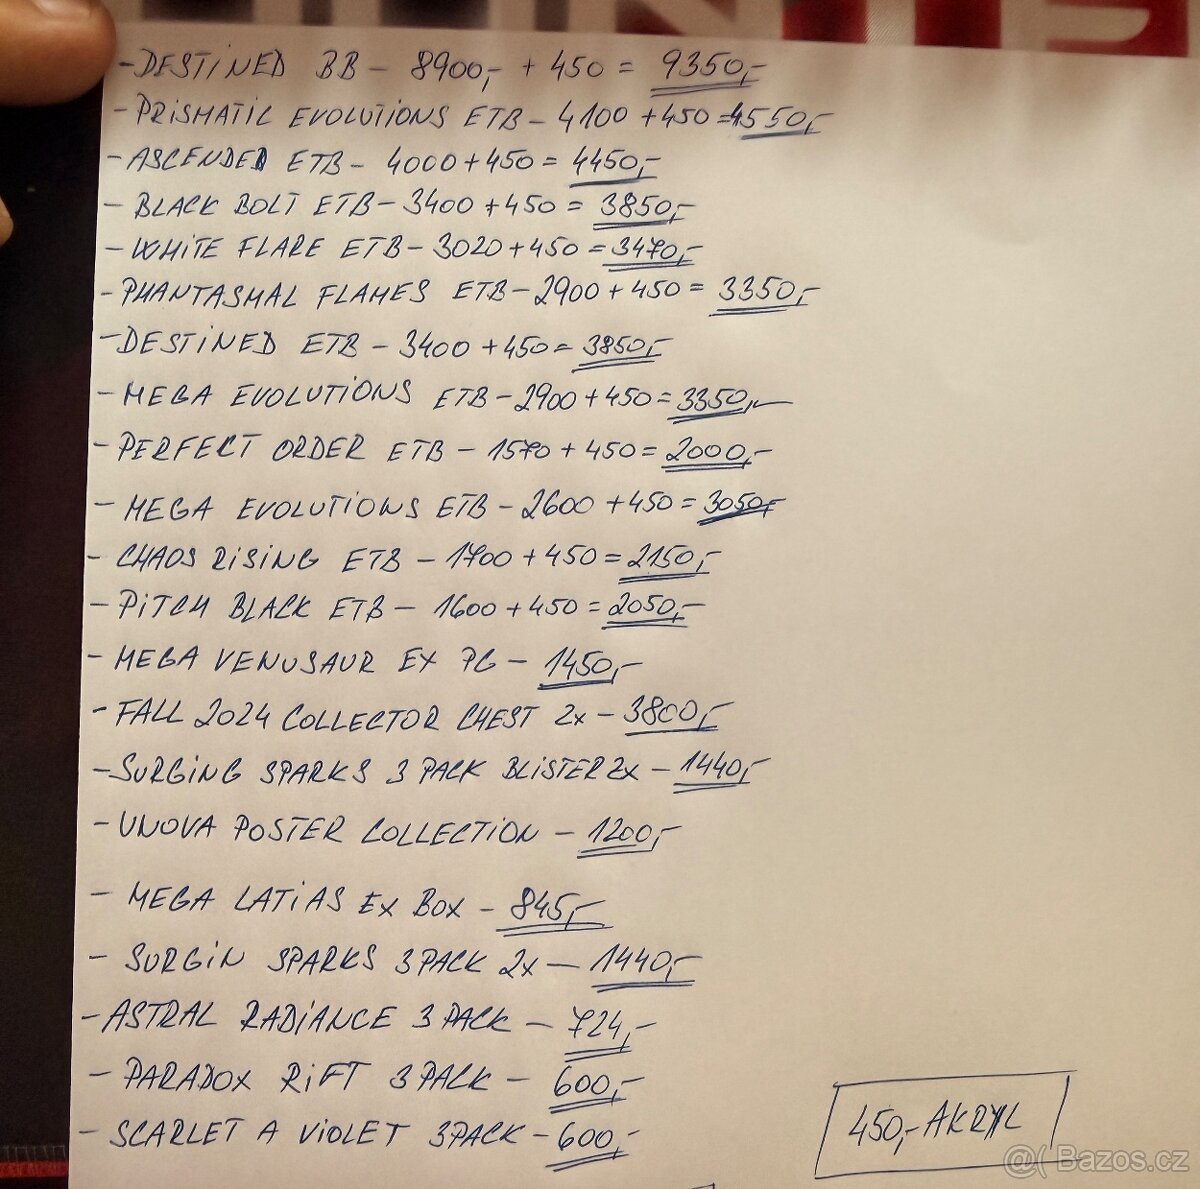 - DESTINED BB - 8900,- + 450 = 9350,-
- PRISMATIC EVOLUTIONS ETB - 4100 + 450 = 4550,-
- ASCENDED ETB - 4000 + 450 = 4450,-
- BLACK BOLT ETB - 3400 + 450 = 3850,-
- WHITE FLARE ETB - 3020 + 450 = 3470,-
- PHANTASMAL FLAMES ETB - 2900 + 450 = 3350,-
- DESTINED ETB - 3400 + 450 = 3850,-
- MEGA EVOLUTIONS ETB - 2900 + 450 = 3350,-
- PERFECT ORDER ETB - 1570 + 450 = 2000,-
- MEGA EVOLUTIONS ETB - 2600 + 450 = 3050,-
- CHAOS RISING ETB - 1700 + 450 = 2150,-
- PITCH BLACK ETB - 1600 + 450 = 2050,-
- MEGA VENUSAUR EX PC - 1450,-
- FALL 2024 COLLECTOR CHEST 2x - 3800,-
- SURGING SPARKS 3 PACK BLISTER 2x - 1440,-
- UNOVA POSTER COLLECTION - 1200,-
- MEGA LATIAS EX BOX - 845,-
- SURGIN SPARKS 3PACK 2x - 1440,-
- ASTRAL RADIANCE 3 PACK - 724,-
- PARADOX RIFT 3PACK - 600,-
- SCARLET A VIOLET 3PACK - 600,-
450,- AKRYL
@( Bazos.cz